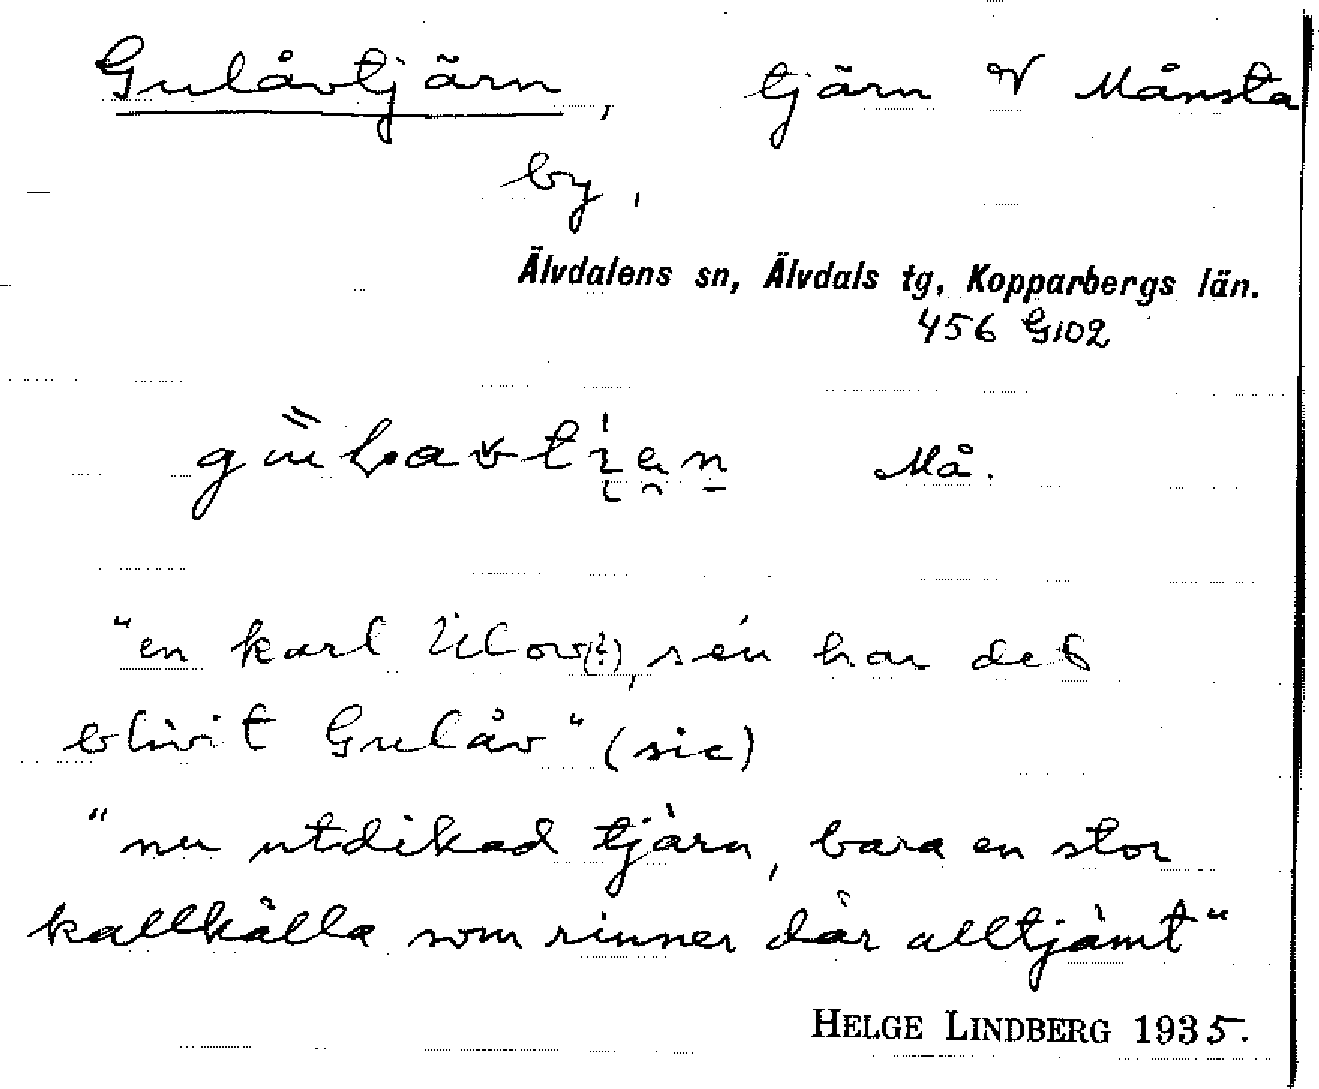 Gulåvtjärn, tjärn V Månsta
by,
Älvdalens sn, Älvdals tg, Kopparbergs län.
456 G102
Må.
"en karl Ulow(?), sén har det
blivit Gulåv" (sic)
"nu utdikad tjärn, bara en stor
kallkälla som rinner där alltjämt"
HELGE LINDBERG 1935.